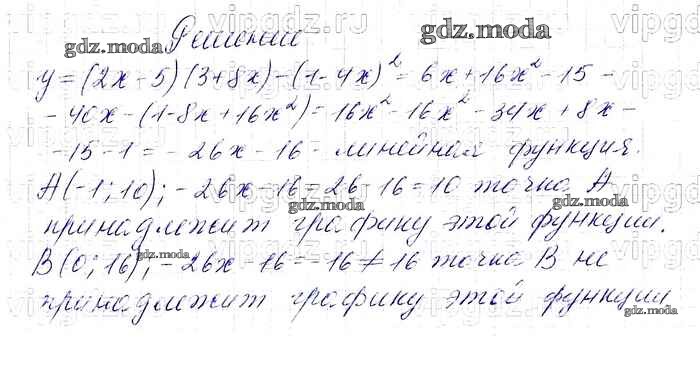 Решении
y = (2x - 5)(3 + 8x) - (1 - 4x)² = 6x + 16x² - 15 -
- 40x - (1 - 8x + 16x²) = 16x² - 16x² - 34x + 8x -
- 15 - 1 = - 26x - 16 - линейная функция.
A(-1; 10); - 26x - 16 = 26 16 = 10 точка A
принадлежит графику этой функции.
B(0; 16); - 26x 16 = - 16 ≠ 16 точка B не
принадлежит графику этой функции
gdz.moda
gdz.moda
gdz.moda
gdz.moda
gdz.moda
gdz.moda
vipgdz.ru